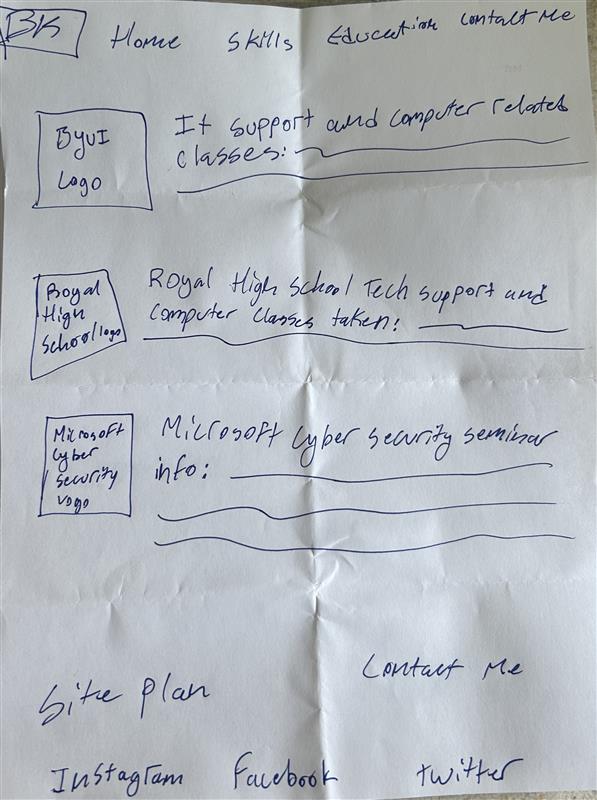 BK Home Skills Education Contact Me
ByuI
Logo
It support and computer related
classes:
Royal
High
School logo
Royal High School Tech support and
computer classes taken:
Microsoft
Cyber
security
Logo
Microsoft Cyber security seminar
info:
Contact Me
Site Plan
Instagram Facebook twitter